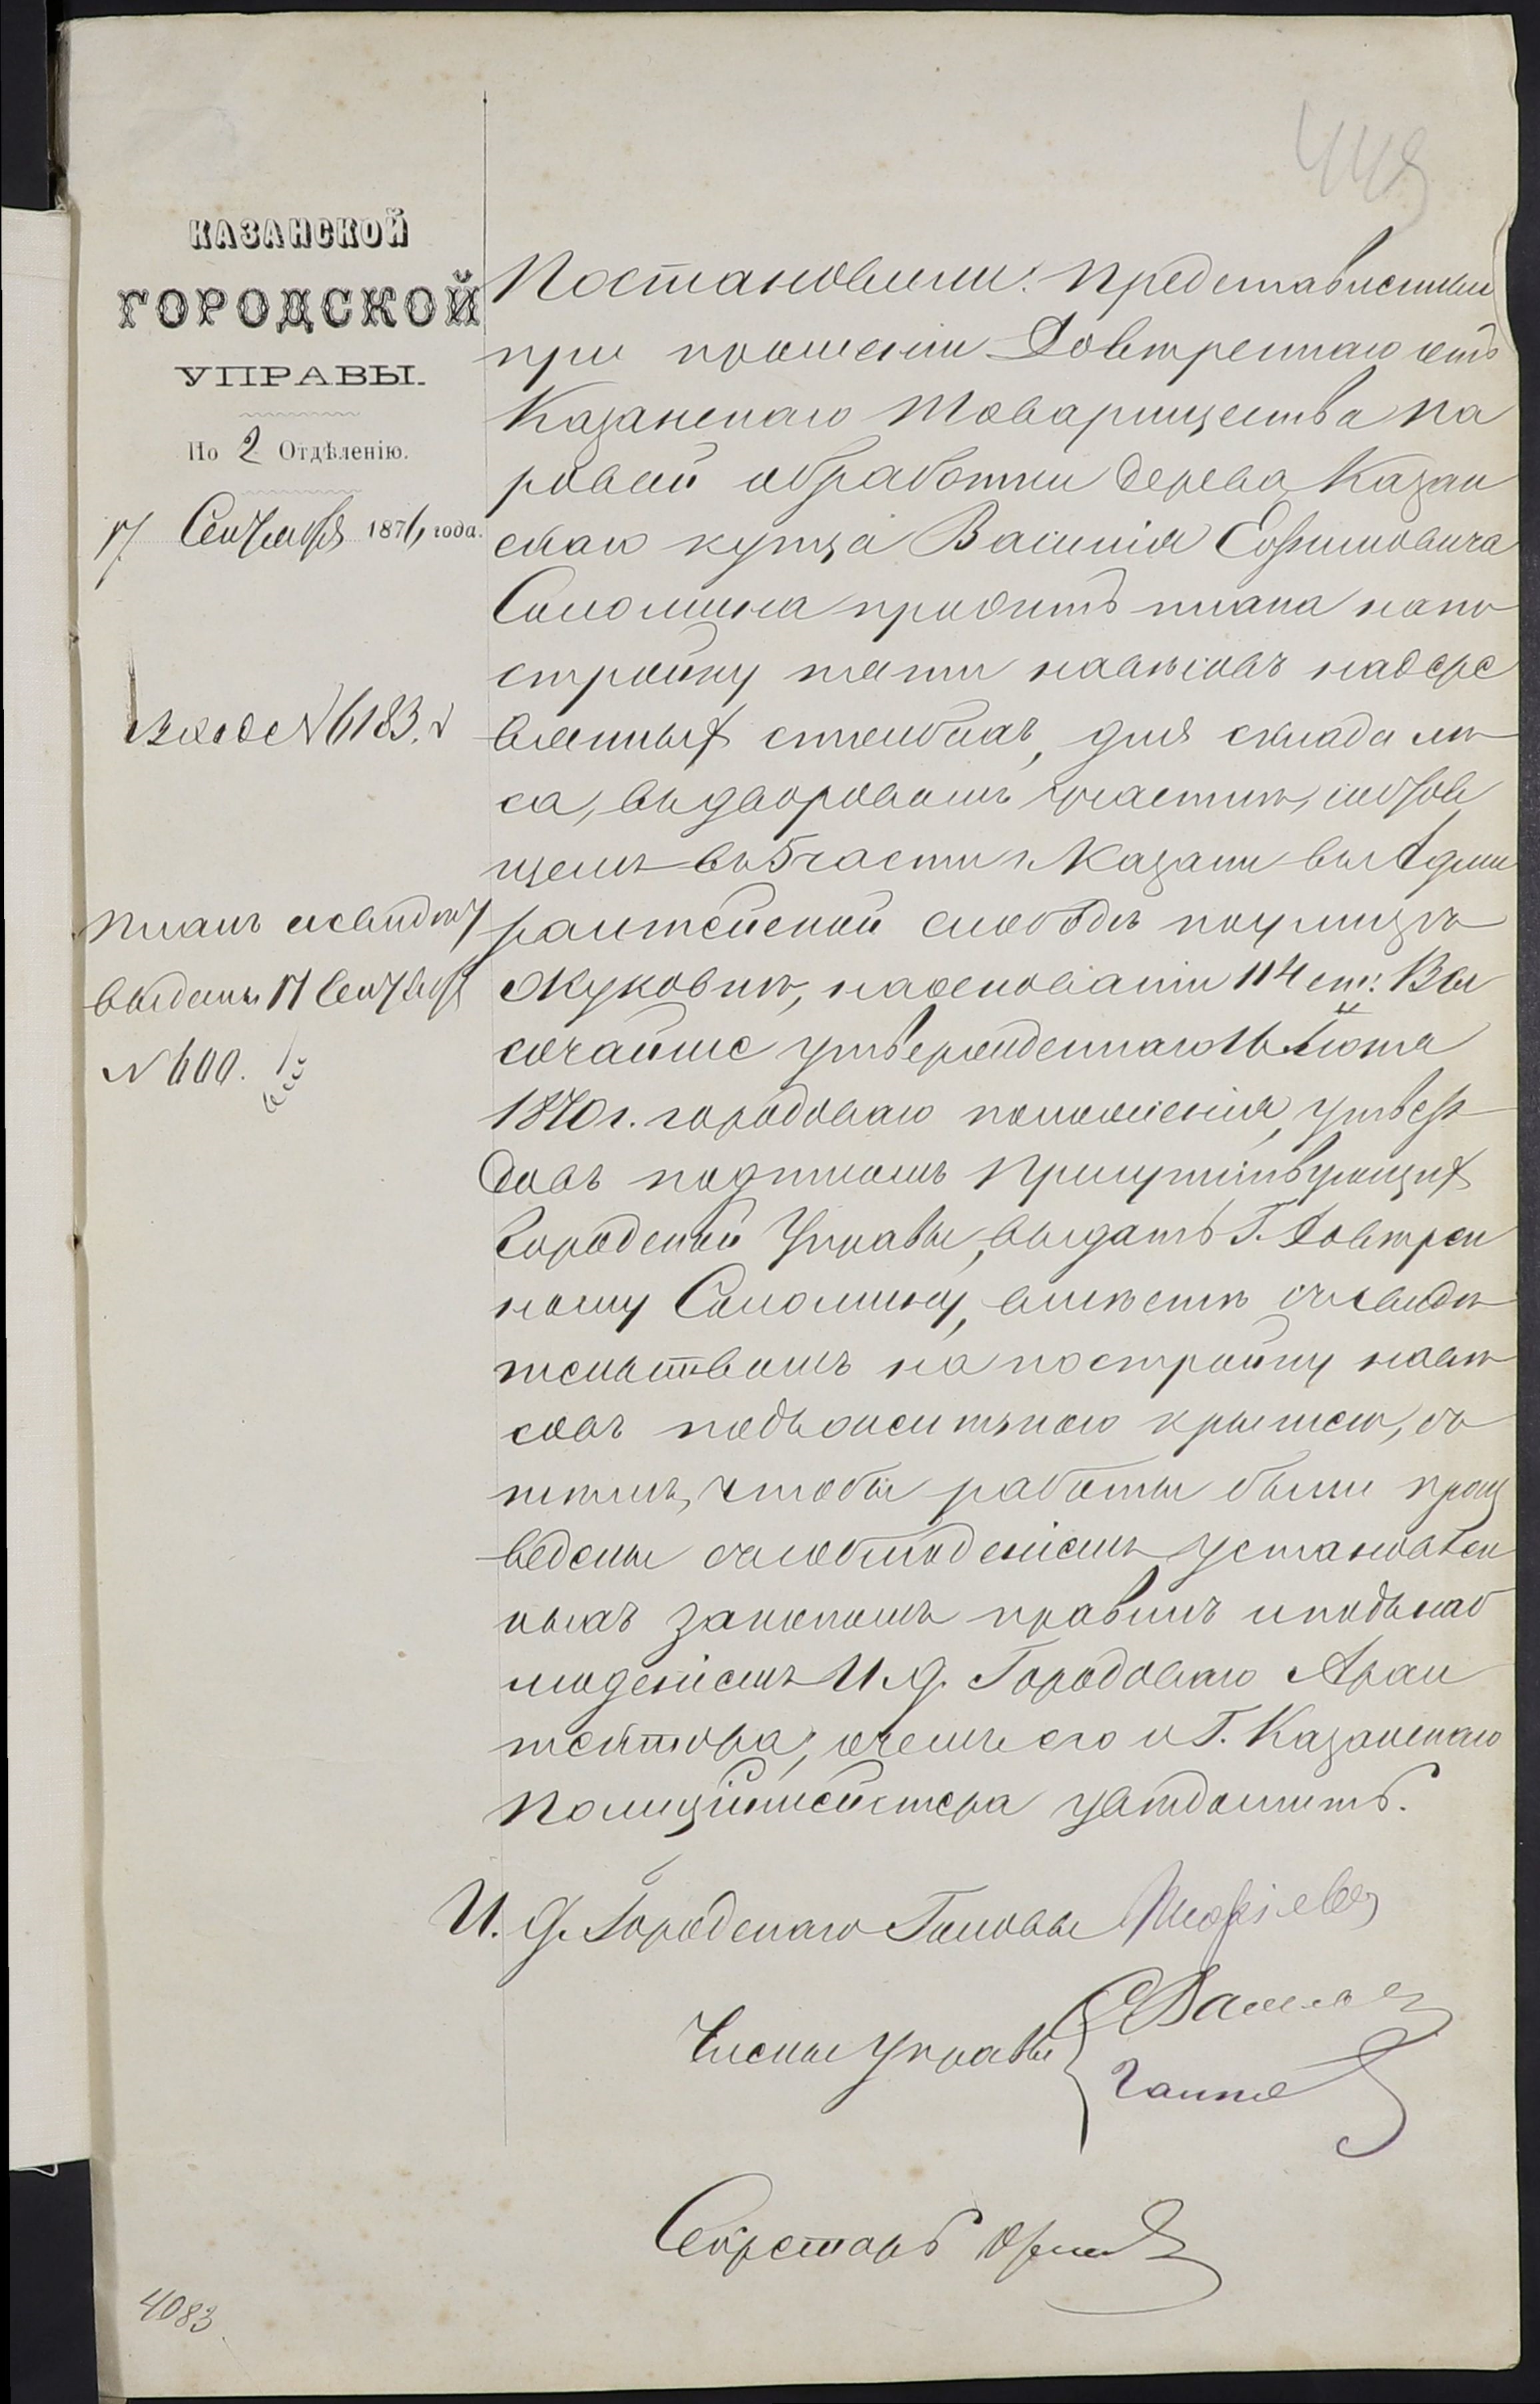 449
КАЗАНСКОЙ
ГОРОДСКОЙ
УПРАВЫ.
По 2 Отдѣленію.
17 Сентября 1876 года.
Вход № 6183.
Планъ и свидѣт
выданы 17 Сентября
№ 600.
Постановили: Представленные
при прошеніи Довѣреннаго отъ
Казанскаго Товарищества па
ровой обработки дерева Казан
скаго купца Василія Ефимовича
Соломина проэктъ плана на по
стройку пяти навѣсовъ на дере
вянныхъ столбахъ, для склада лѣ
са, въ дворовомъ участкѣ, состоя
щемъ въ 5 части г. Казани въ Адми
ралтейской слободѣ по улицѣ
Жуковкѣ, на основаніи 114 ст. Вы
сочайше утвержденнаго 16 Іюня
1870 г. городоваго положенія, утвер
дивъ подписомъ Присутствующихъ
Городской Управы, выдать Г. Довѣрен
ному Соломину, вмѣстѣ съ свидѣ
тельствомъ на постройку навѣ
совъ подъ желѣзною крышею, съ
тѣмъ, чтобы работы были произ
ведены съ соблюденіемъ установлен
ныхъ закономъ правилъ и подъ наб
люденіемъ И. д. Городоваго Архи
тектора, о чемъ его и Г. Казанскаго
Полиціймейстера увѣдомить.
И. д. Городскаго Головы
Члены Управы
Секретарь
4083